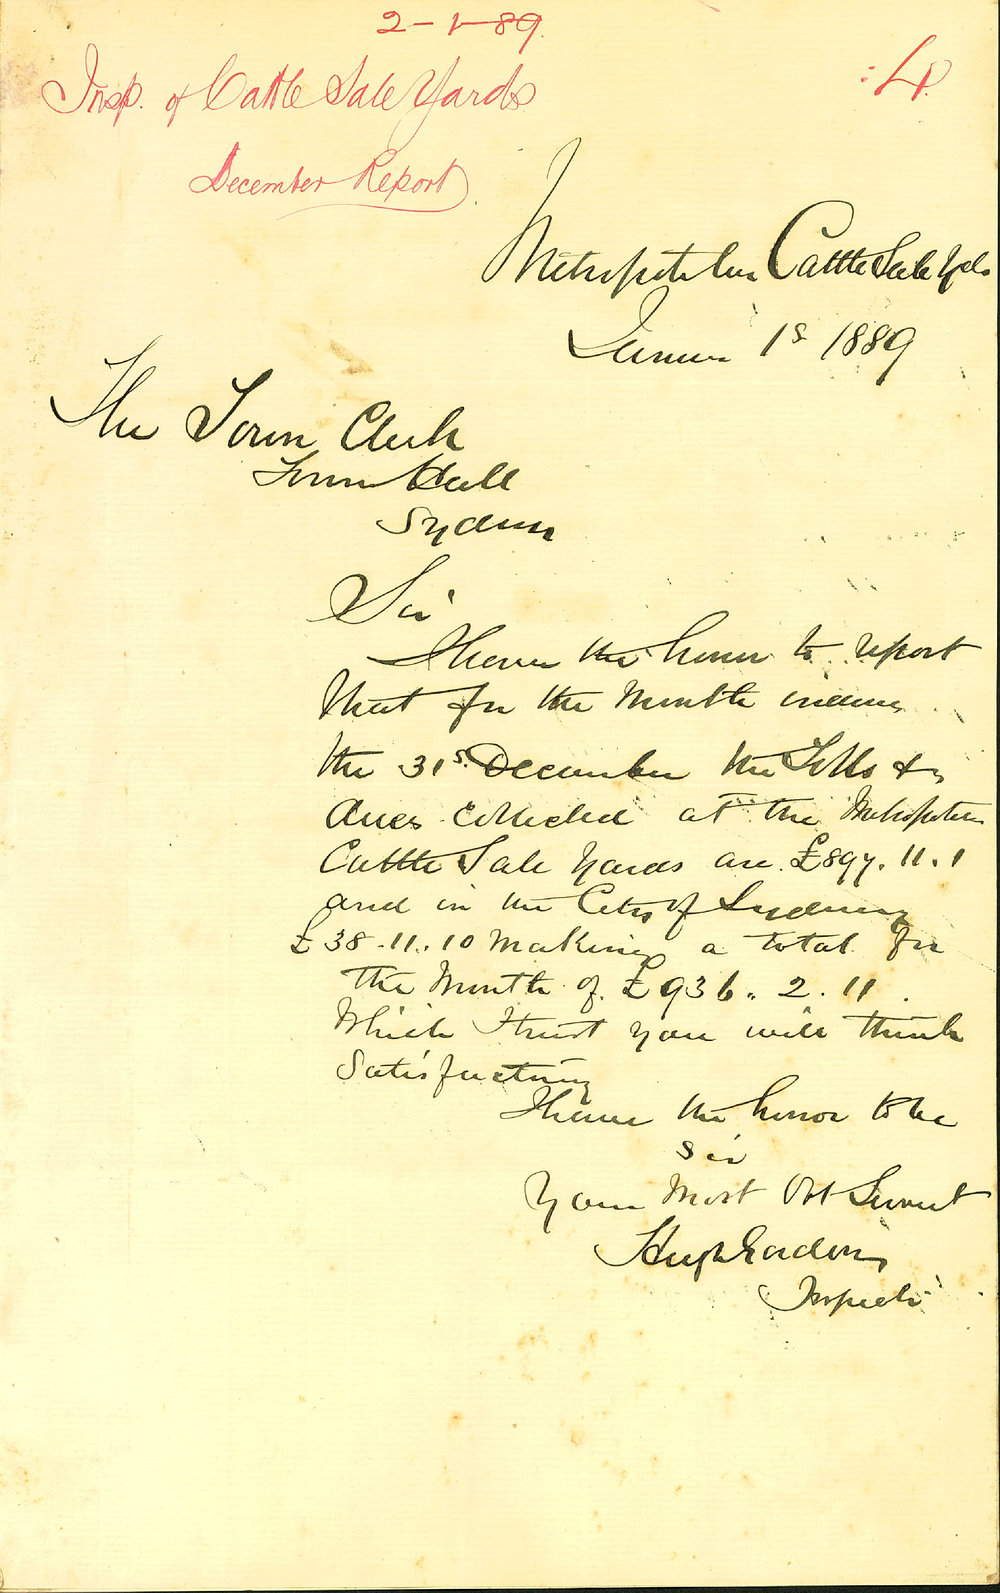 2-1-89
:4.
Insp. of Cattle Sale Yards
December Report.
Metropolitan Cattle Sale Yds
1s 1889
The Town Clerk
Town Hall
Sydney
Sir
I have the honor to report
that for the Month ending
the 31s. December the Tolls &
dues collected at the Metropolitan
Cattle Sale Yards are £897.11.1
and in the City of Sydney
£38-11.10 making a total for
the Month of £936.2.11.
Which I trust you will think
Satisfactory
I have the honor to be
Sir
Your Most Obt Servant
Hugh
Inspector